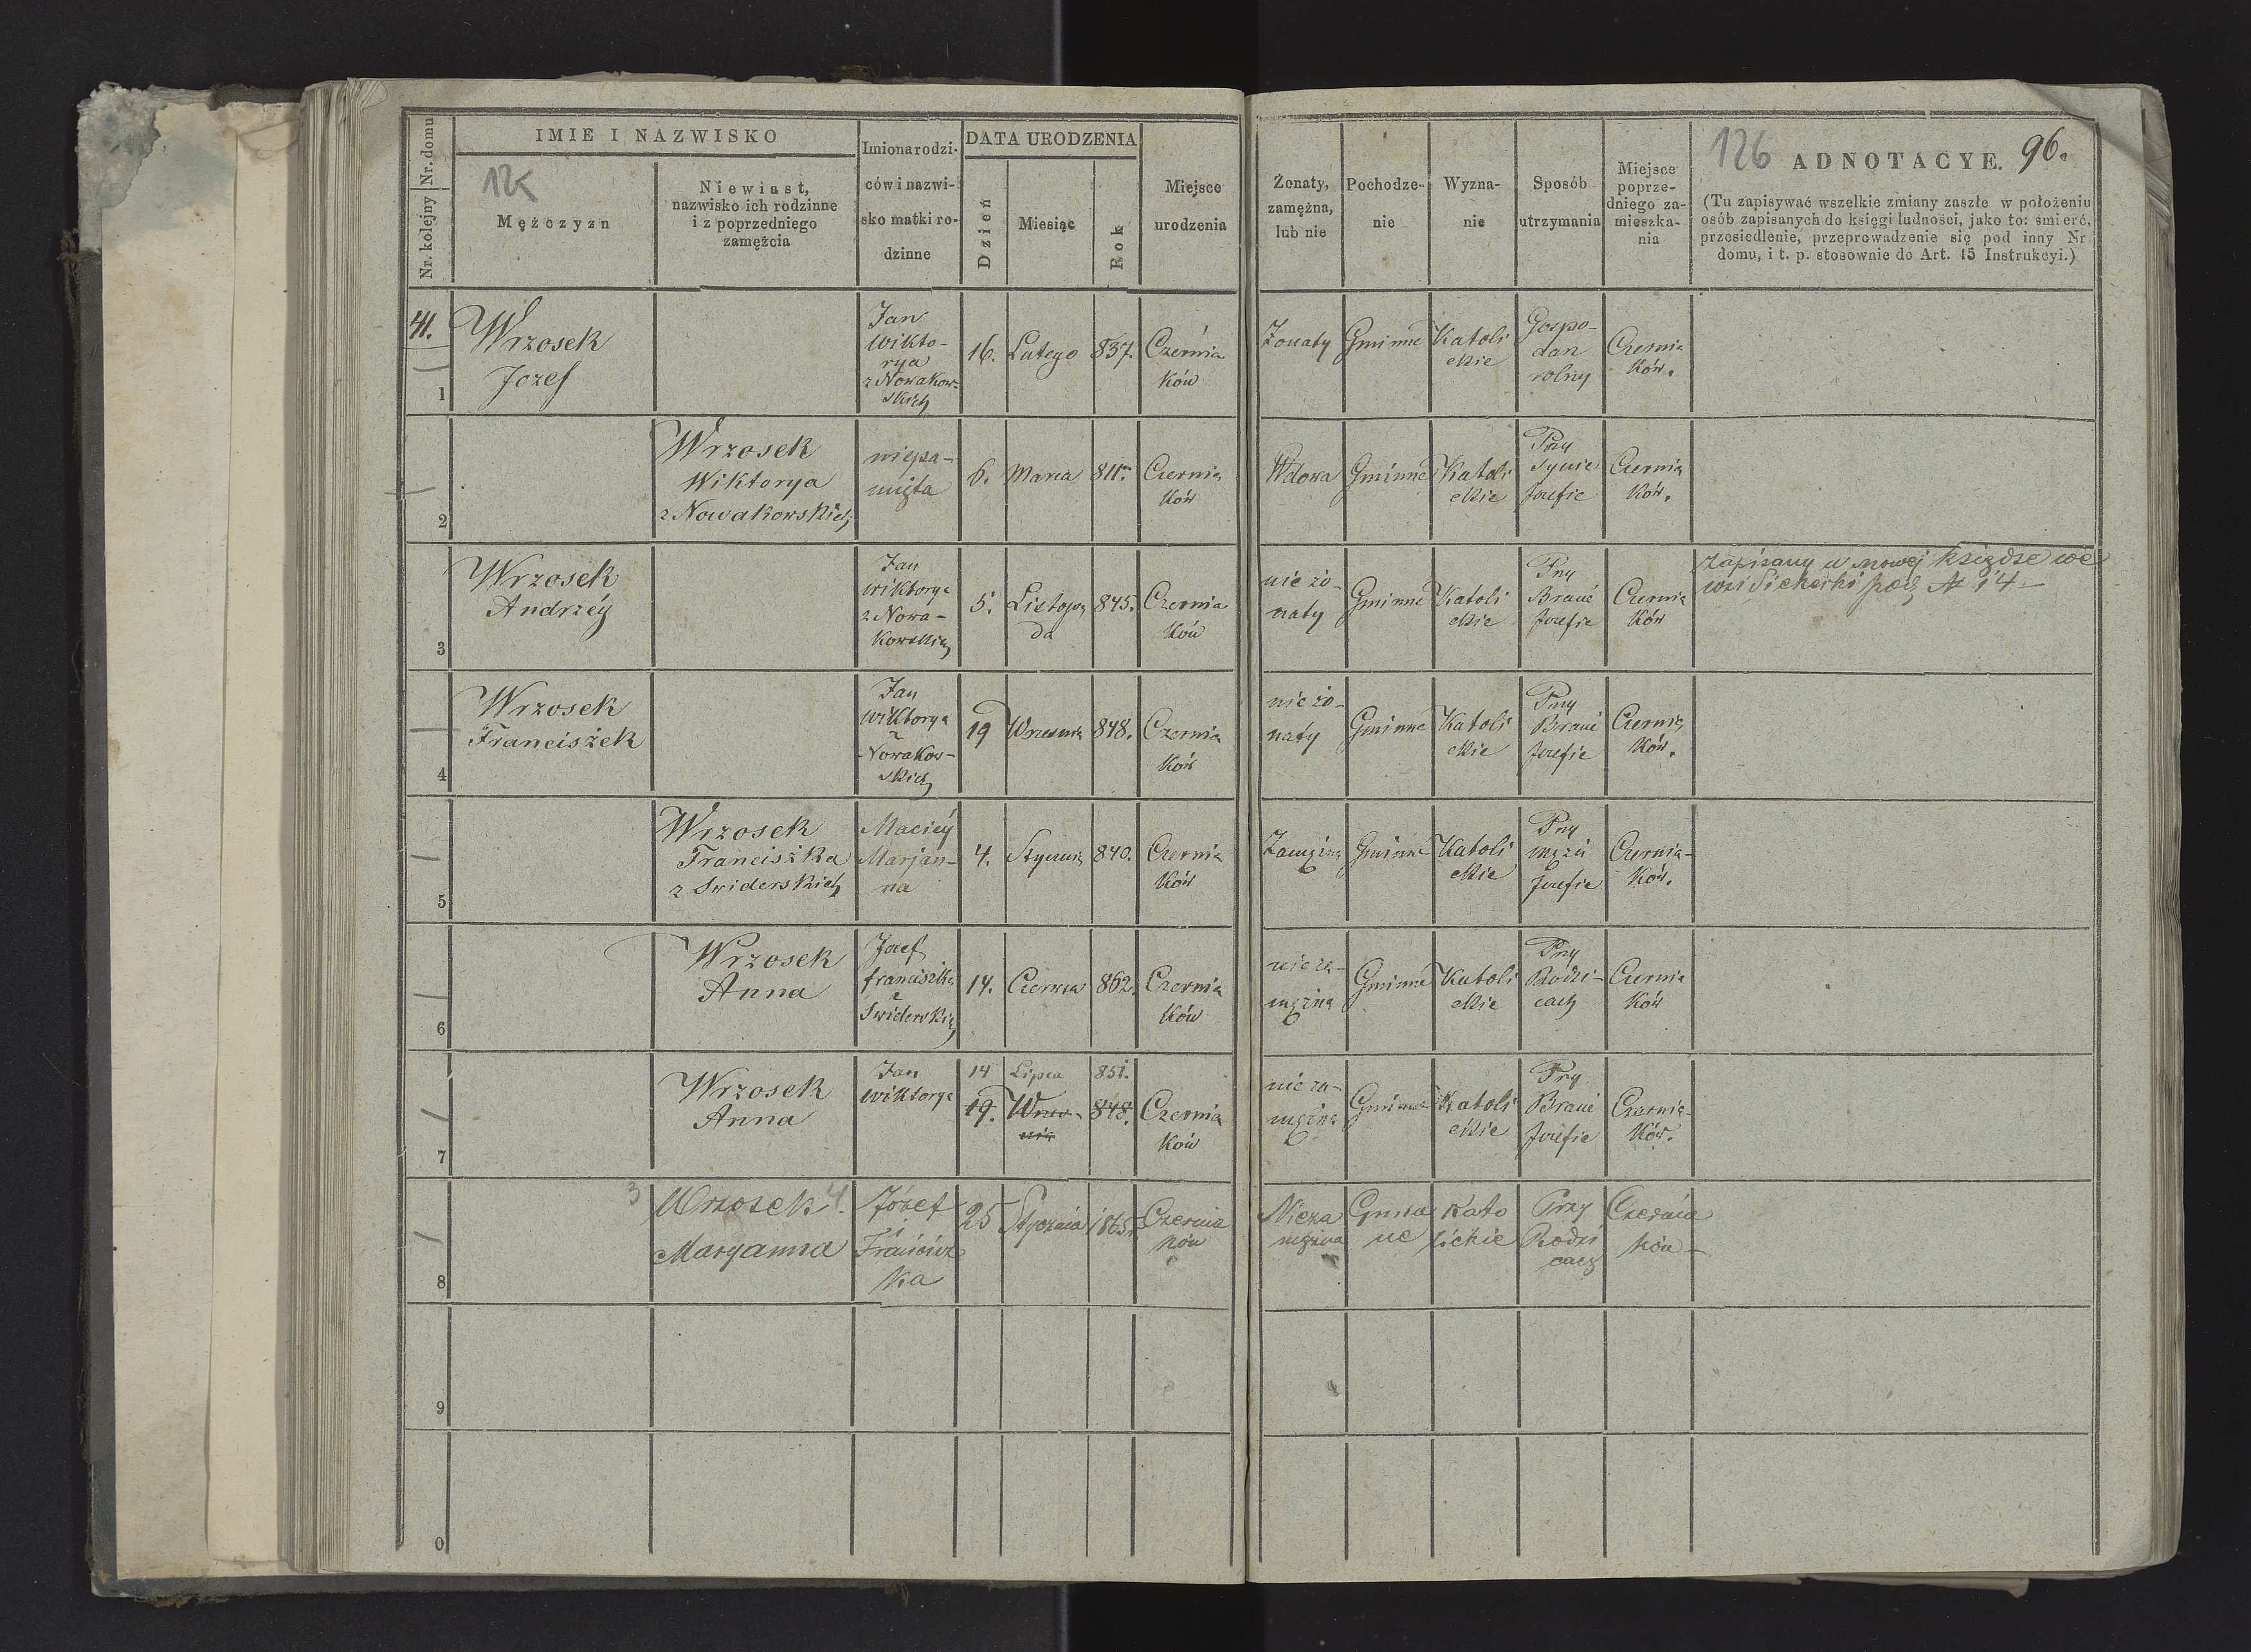 Nr. domu
Nr. kolejny
IMIE I NAZWISKO
125
Mężczyzn
Niewiast,
nazwisko ich rodzinne
i z poprzedniego
zamęźcia
Imiona rodzi-
ców i nazwi-
sko matki ro-
dzinne
DATA URODZENIA
Dzień
Miesiąc
Rok
Miejsce
urodzenia
Żonaty,
zamężna,
lub nie
Pochodze-
nie
Wyzna-
nie
Sposób
utrzymania
Miejsce
poprze-
dniego za-
mieszka-
nia
126 ADNOTACYE. 96.
(Tu zapisywać wszelkie zmiany zaszłe w położeniu
osób zapisanych do księgi ludności, jako to: śmierć,
przesiedlenie, przeprowadzenie się pod inny Nr
domu, i t. p. stosownie do Art. 15 Instrukcyi.)
41.
1
Wrzosek
Jozef
Jan
Wikto-
rya
z Nowakow-
skich
16. Lutego 837.
Czernia
ków
Żonaty
Gminne
Katoli
ckie
Gospo-
darz
rolny
Czernia
ków.
2
Wrzosek
Wiktorya
z Nowakowskich
niepa-
mięta
6. Marca 811.
Czernia
ków
Wdowa
Gminne
Katoli
ckie
Przy
Synie
Jozefie
Czernia
ków.
3
Wrzosek
Andrzéy
Jan
Wiktorya
z Nowa-
kowskich
5. Listopa
da
845.
Czernia
ków
nie żo-
naty
Gminne
Katoli
ckie
Przy
Bracie
Jozefie
Czernia
ków
Zapisany w nowej księdze we
wsi Siekierki pod № 14
4
Wrzosek
Franciszek
Jan
Wiktorya
z
Nowakow-
skich
19 Wrzesnia 848.
Czernia
ków
nie żo-
naty
Gminne
Katoli
ckie
Przy
Bracie
Jozefie
Czernia
ków.
5
Wrzosek
Franciszka
z Swiderskich
Maciéy
Marjan-
na
4. Stycznia 840.
Czernia
ków
Zamężna
Gminne
Katoli
ckie
Przy
mężu
Jozefie
Czernia-
ków.
6
Wrzosek
Anna
Jozef
franciszka
z
Swiderskich
14. Czerwca 862.
Czernia
ków
nie za-
mężna
Gminne
Katoli
ckie
Przy
Rodzi-
cach
Czernia
ków
7
Wrzosek
Anna
Jan
Wiktorya
14 Lipca 851.
19. Wrze-
snia
848.
Czernia
ków
nie za-
mężna
Gminne
Katoli
ckie
Przy
Bracie
Jozefie
Czernia-
ków.
8
3
Wrzosek 4.
Maryanna
Józef
i
Francisz
ka
25 Stycznia 1865.
Czernia
ków
Nieza
mężna
Gmin
ne
Kato
lickie
Przy
Rodzi
cach
Czernia
ków
9
0